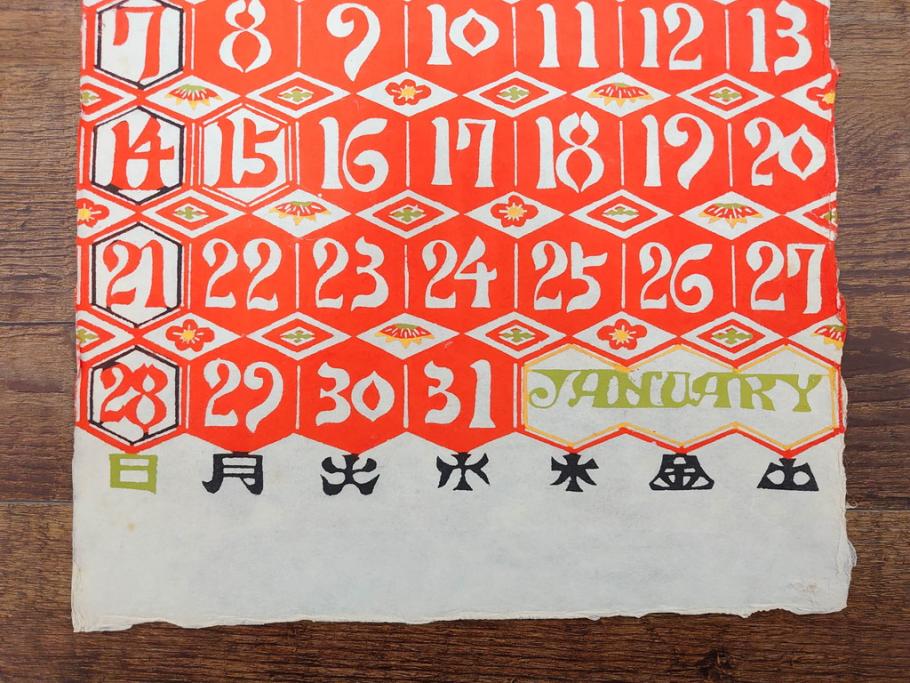 7 8 9 10 11 12 13
14 15 16 17 18 19 20
21 22 23 24 25 26 27
28 29 30 31 JANUARY
日 月 火 水 木 金 土